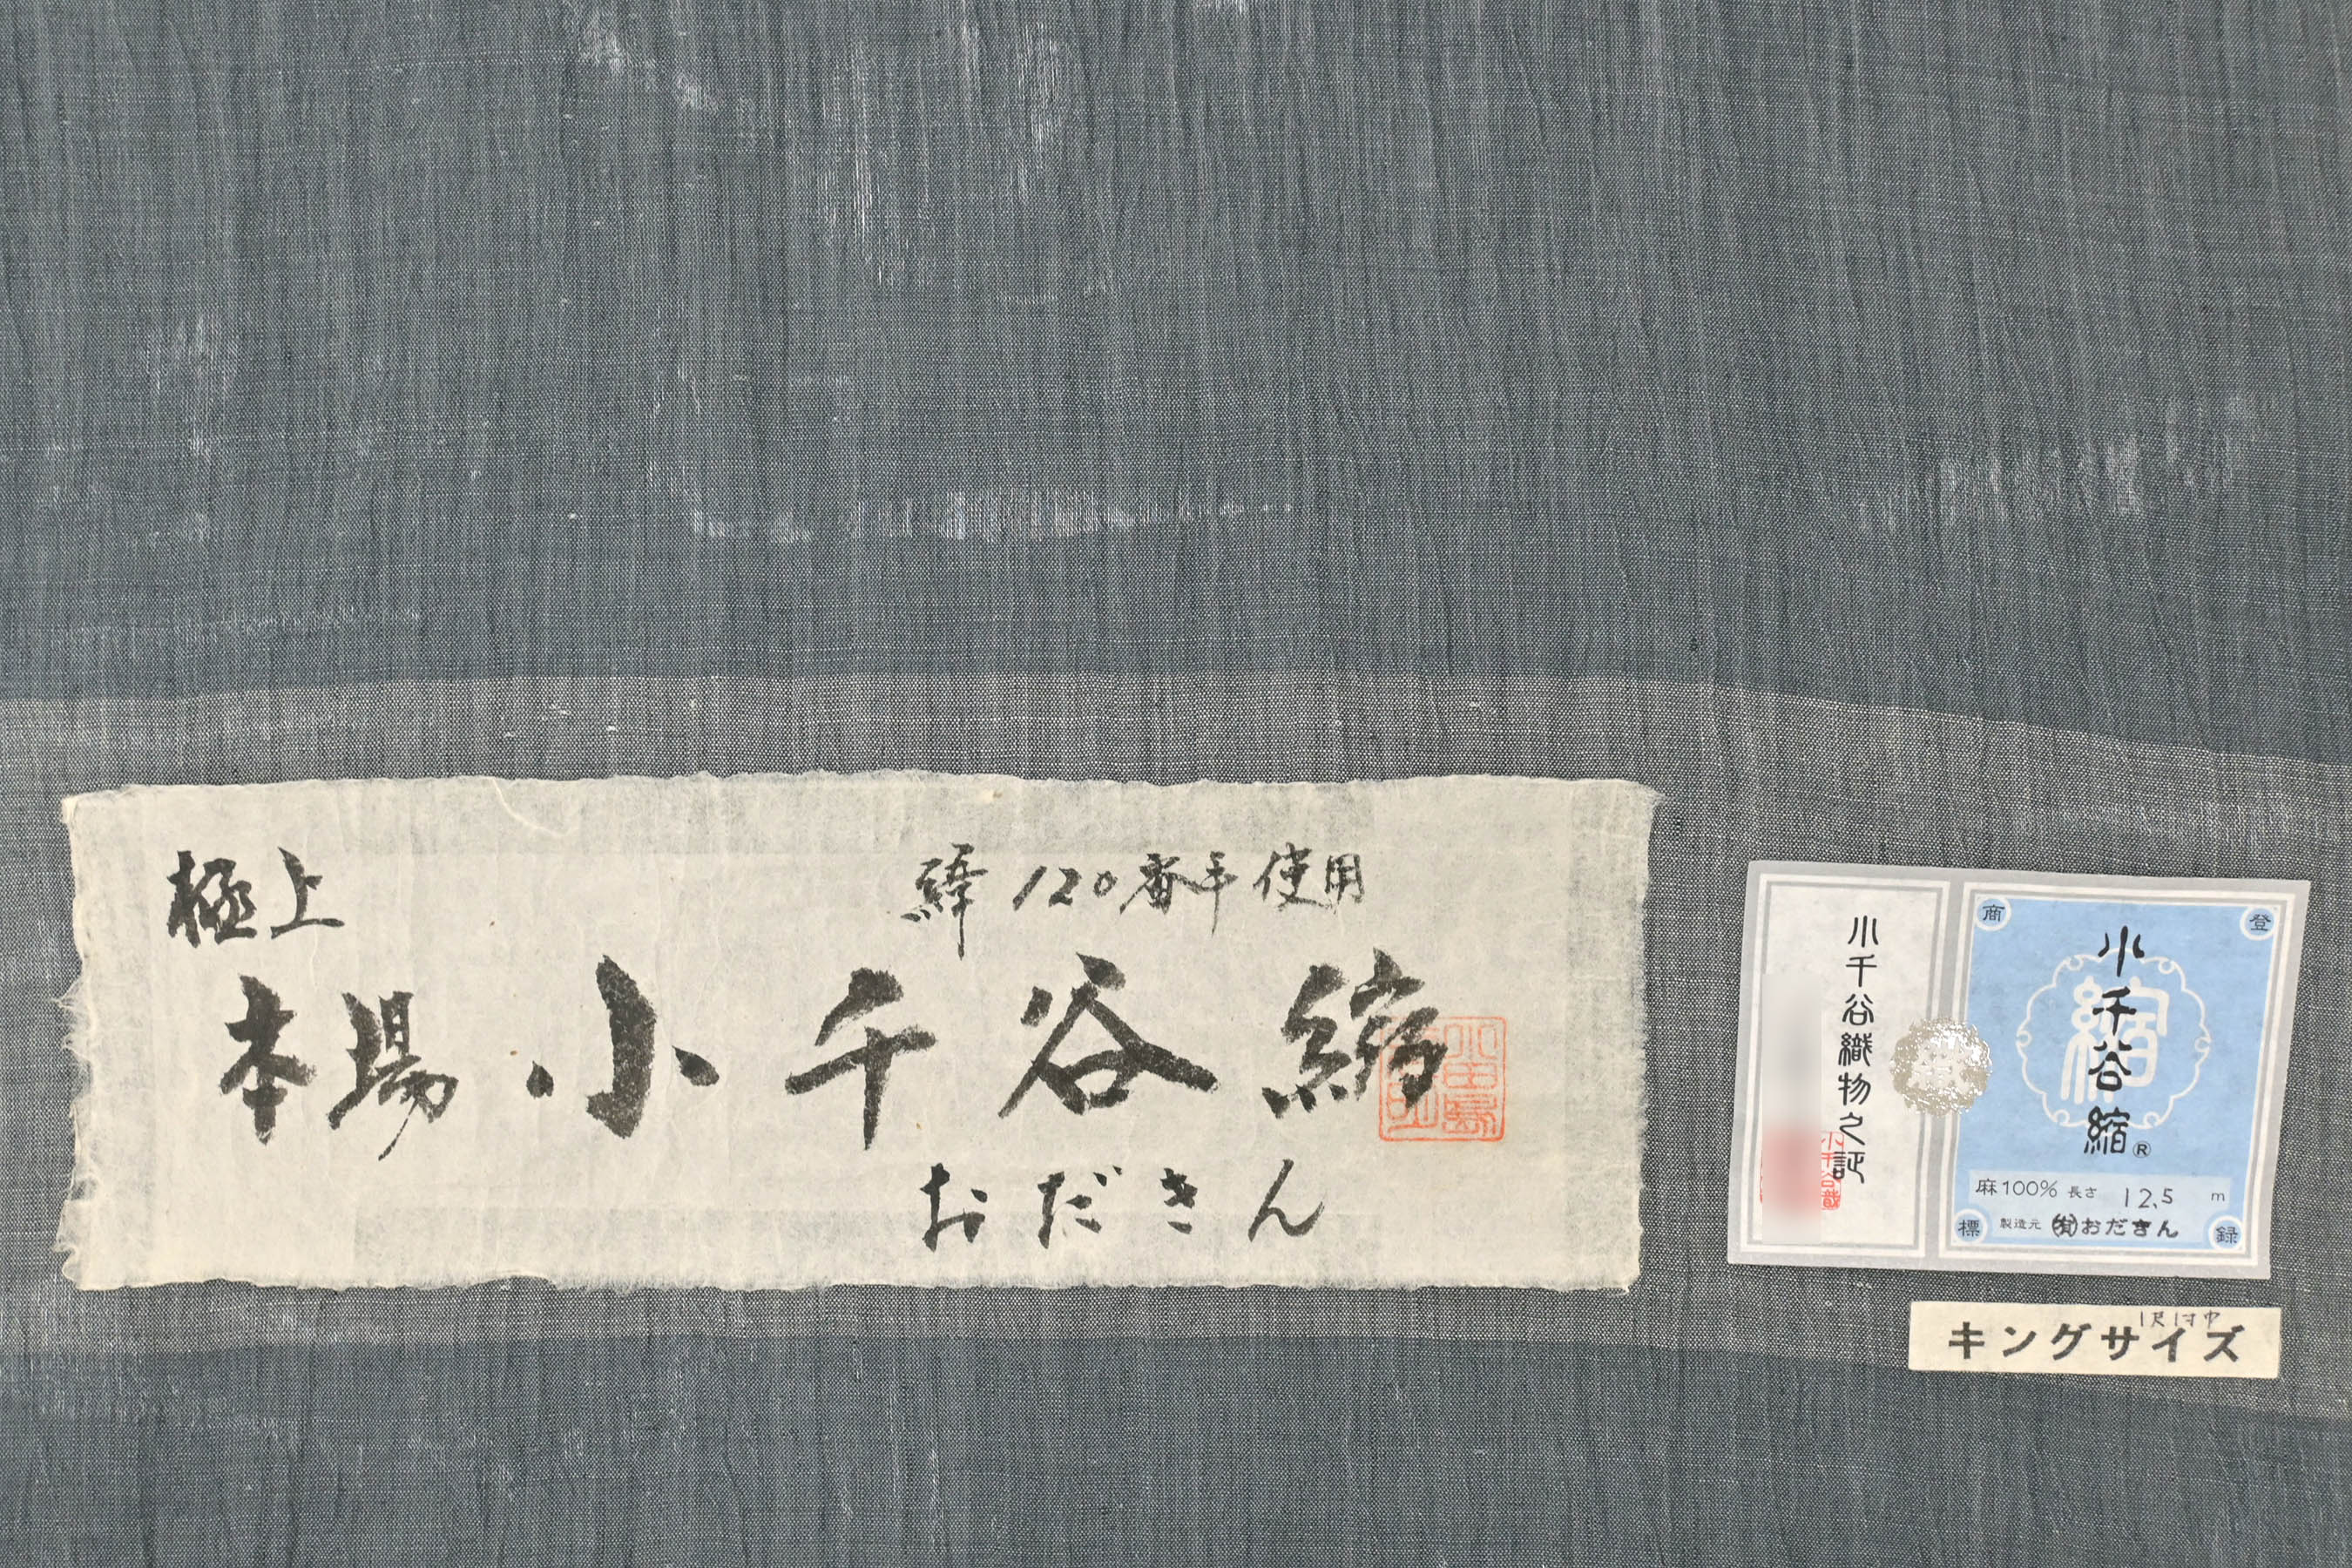 極上
緯120番手使用
本場小千谷縮
おだきん
小千谷織物之証
商
登
縮
小千谷縮®
麻100% 長さ 12.5 m
標
製造元 (有)おだきん
録
1尺1寸巾
キングサイズ